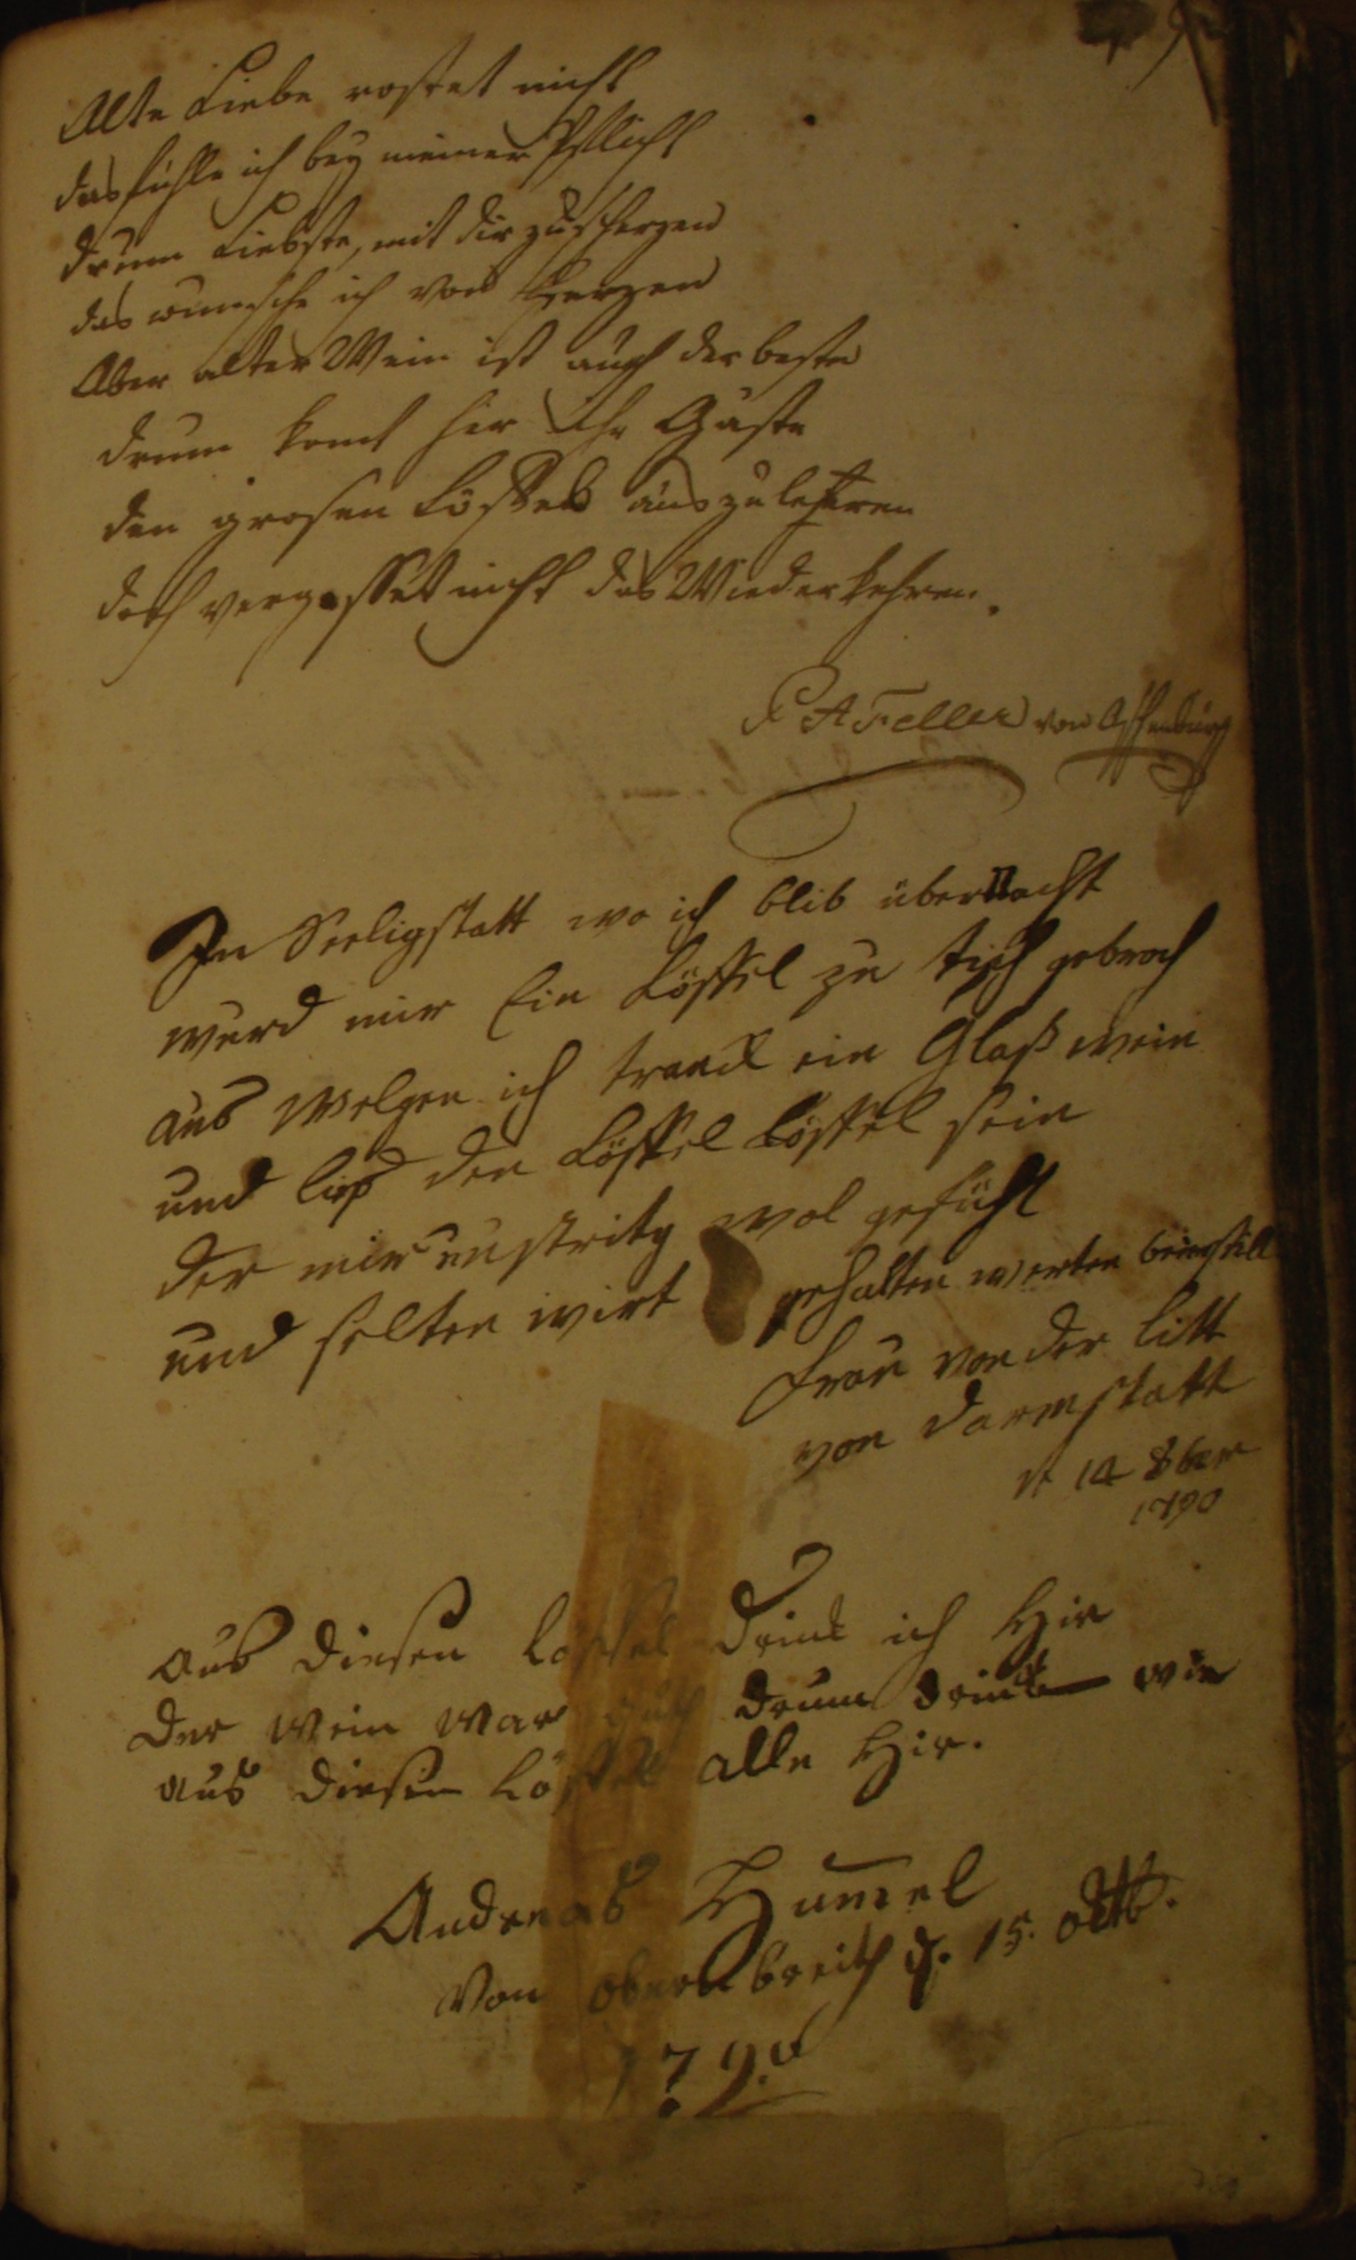 Alte Liebe rostet nicht
das fühle ich bey meiner Pflicht
drum Liebste, mit dir zu scherzen
das wünsche ich von Herzen
Aber alter Wein ist auch der beste
drum komt hir Ihr Gäste
den grosen Löffel auszulehren
doch vergesset nicht das Wiederkehren.
F A Feller von
In Seeligstatt wo ich blib über Nacht
wurd mir Ein Löffel zu tisch gebrach
aus welgen ich tranck ein Glaß wein
und liß den Löffel Löffel sein
der mir wol gefühl
und selten wirt gehalten werten
Frau von der Litt
von Darmstatt
d 14 8ber
1790
Aus diesen Löffel Drink ich Hir
Der Wein war guth drum drinck wir
aus diesem Löffel alle Hir.
Andreas Humel
Von obernbreith d. 15. octb.
1790